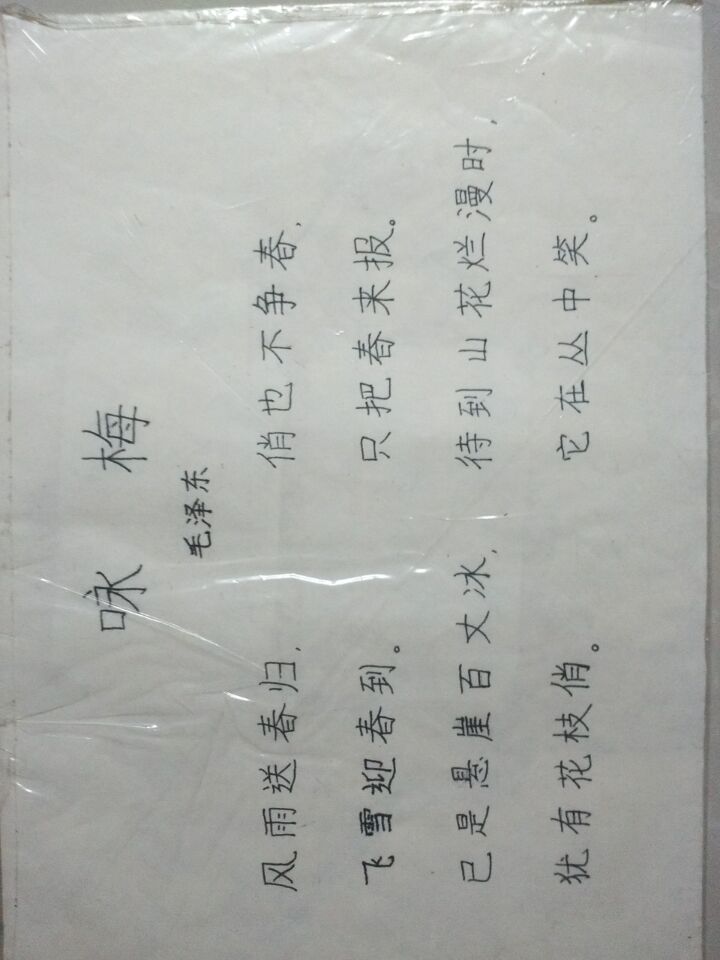 咏 梅
毛泽东
风雨送春归， 俏也不争春，
飞雪迎春到。 只把春来报。
已是悬崖百丈冰， 待到山花烂漫时，
犹有花枝俏。 它在丛中笑。